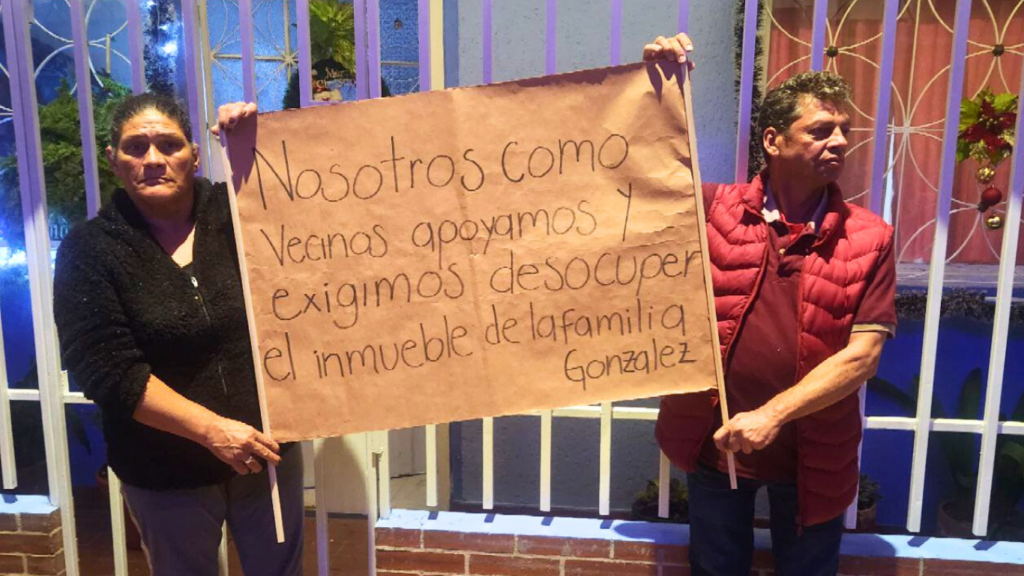 Nosotros como
Vecinas apoyamos y
exigimos desocuper
el inmueble de la familia
Gonzalez